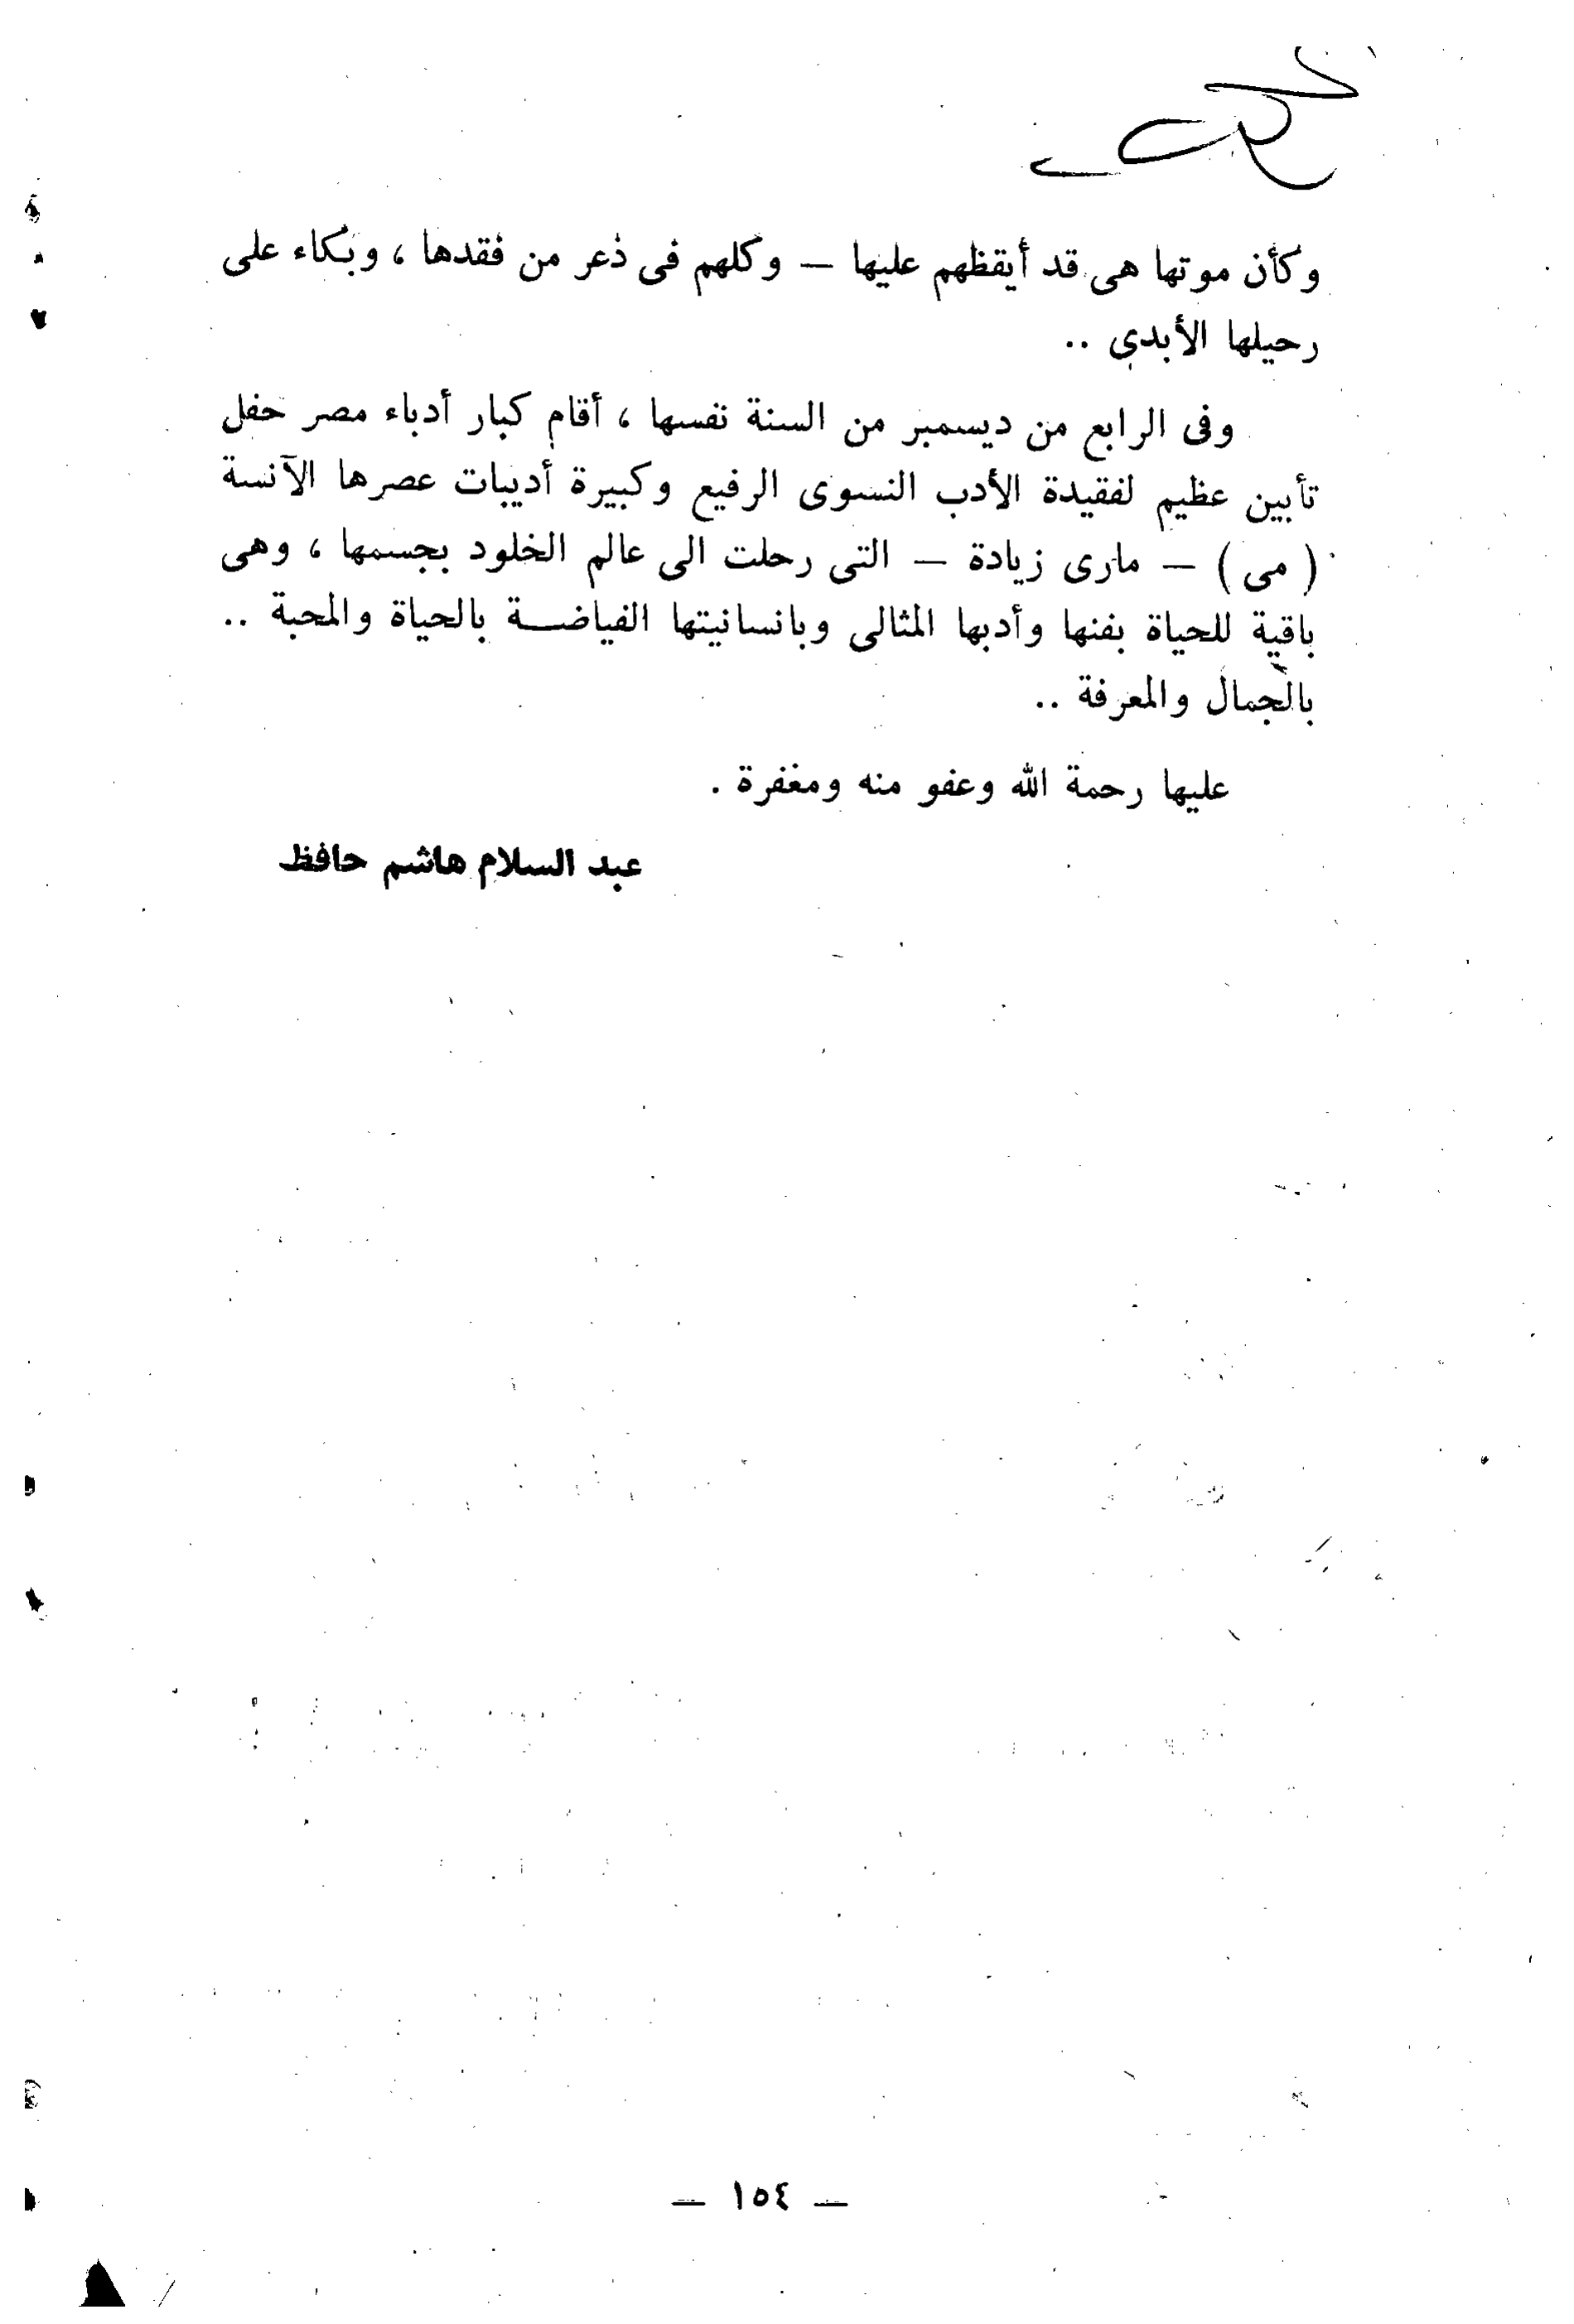 وكأن موتها هى قد أيقظهم عليها — وكلهم فى ذعر من فقدها ، وبكاء على
رحيلها الأبدى ..
وفى الرابع من ديسمبر من السنة نفسها ، أقام كبار أدباء مصر حفل
تأبين عظيم لفقيدة الأدب النسوى الرفيع وكبيرة أديبات عصرها الآنسة
( مى ) — مارى زيادة — التى رحلت الى عالم الخلود بجسمها ، وهى
باقية للحياة بفنها وأدبها المثالى وبانسانيتها الفياضــة بالحياة والمحبة ..
بالجمال والمعرفة ..
عليها رحمة الله وعفو منه ومغفرة .
عبد السلام هاشم حافظ
— ١٥٤ —